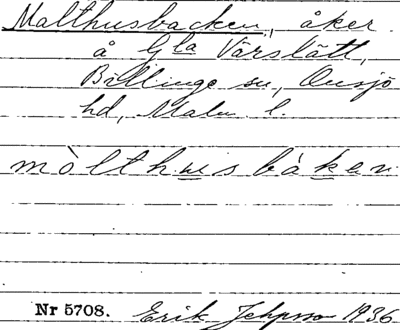 Malthusbacken, åker
å Gla Värslätt,
Billinge sn, Onsjö
hd, Malm. l.
mòlthusbàken
Nr 5708. Erik Jeppsson 1936